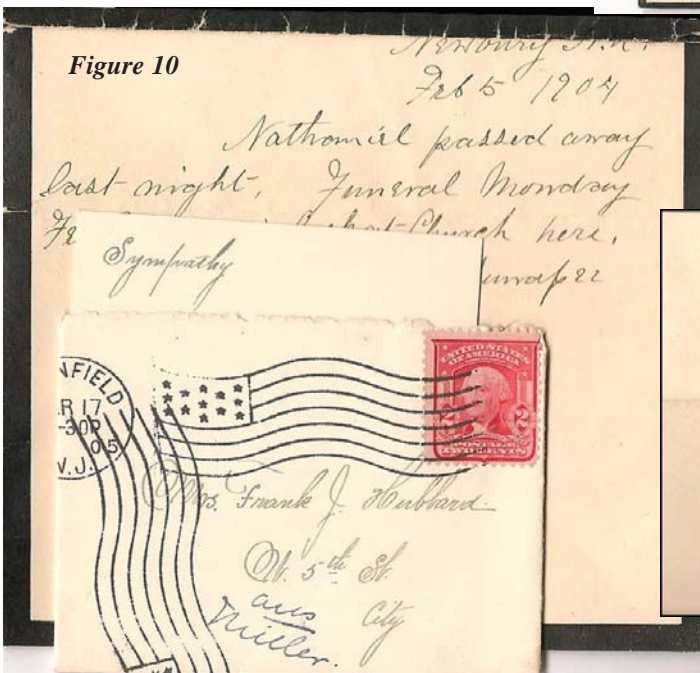 Figure 10
Newbury N.H.
Feb 5 1904
Nathaniel passed away
last night. Funeral Monday
Church here.
Sympathy
NFIELD
R 17
-30P
05
N.J.
UNITED STATES
OF AMERICA
2 2
POSTAGE
TWO CENTS
Mrs. Frank J. Hubbard.
W. 5th St.
City
ans
Miller.